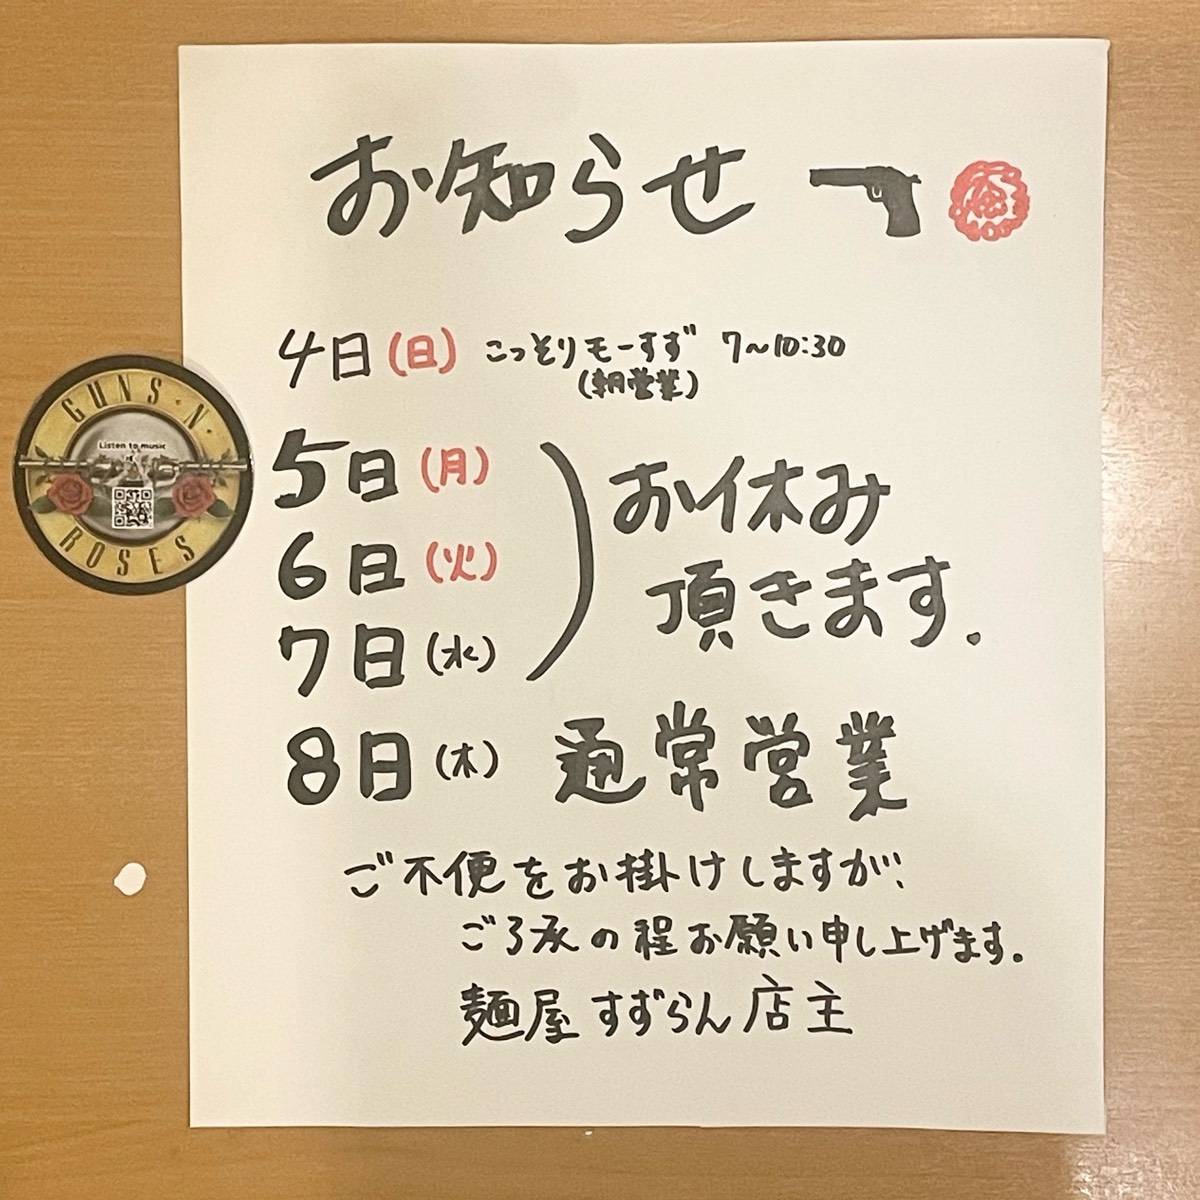 お知らせ
4日(日) こっそりモーすず 7～10:30
(朝営業)
5日(月)
6日(火)
7日(水)
お休み
頂きます.
8日(木) 通常営業
ご不便をお掛けしますが、
ご了承の程お願い申し上げます.
麺屋 すずらん店主
GUNS N'
Listen to music
ROSES